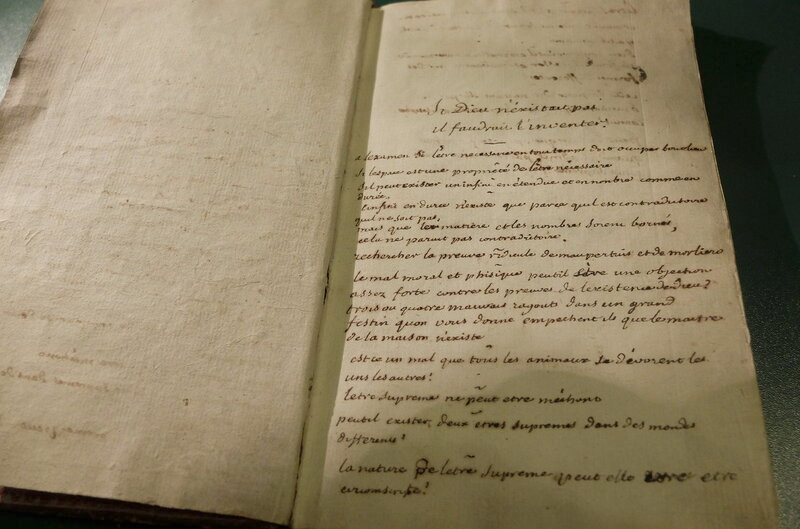 Si Dieu n'éxistait pas
il faudrait l'inventer!
a lexamen de l'etre necessaire en tout temps doit
si lespace est une propriété de l'etre nécessaire
sil peut exister un infini en étendue et en nombre comme en
durée.
l'infini en durée n'existe que parce quil est contradictoire
quil ne soit pas,
mais que la matiere et les nombres soient bornés,
cela ne parait pas contradictoire.
rechercher la preuve ridicule de maupertuis et de
le mal moral et phisique peutil etre une objection
assez forte contre les preuves de lexistence de dieu?
trois ou quatre mauvais ragouts dans un grand
festin quon vous donne empechent ils que le maitre
de la maison n'existe
est ce un mal que tous les animaux se dévorent les
uns les autres?
letre supreme ne peut etre méchant
peutil exister deux etres supremes dans des mondes
differents?
la nature de letre supreme peut elle etre
circonscrite?